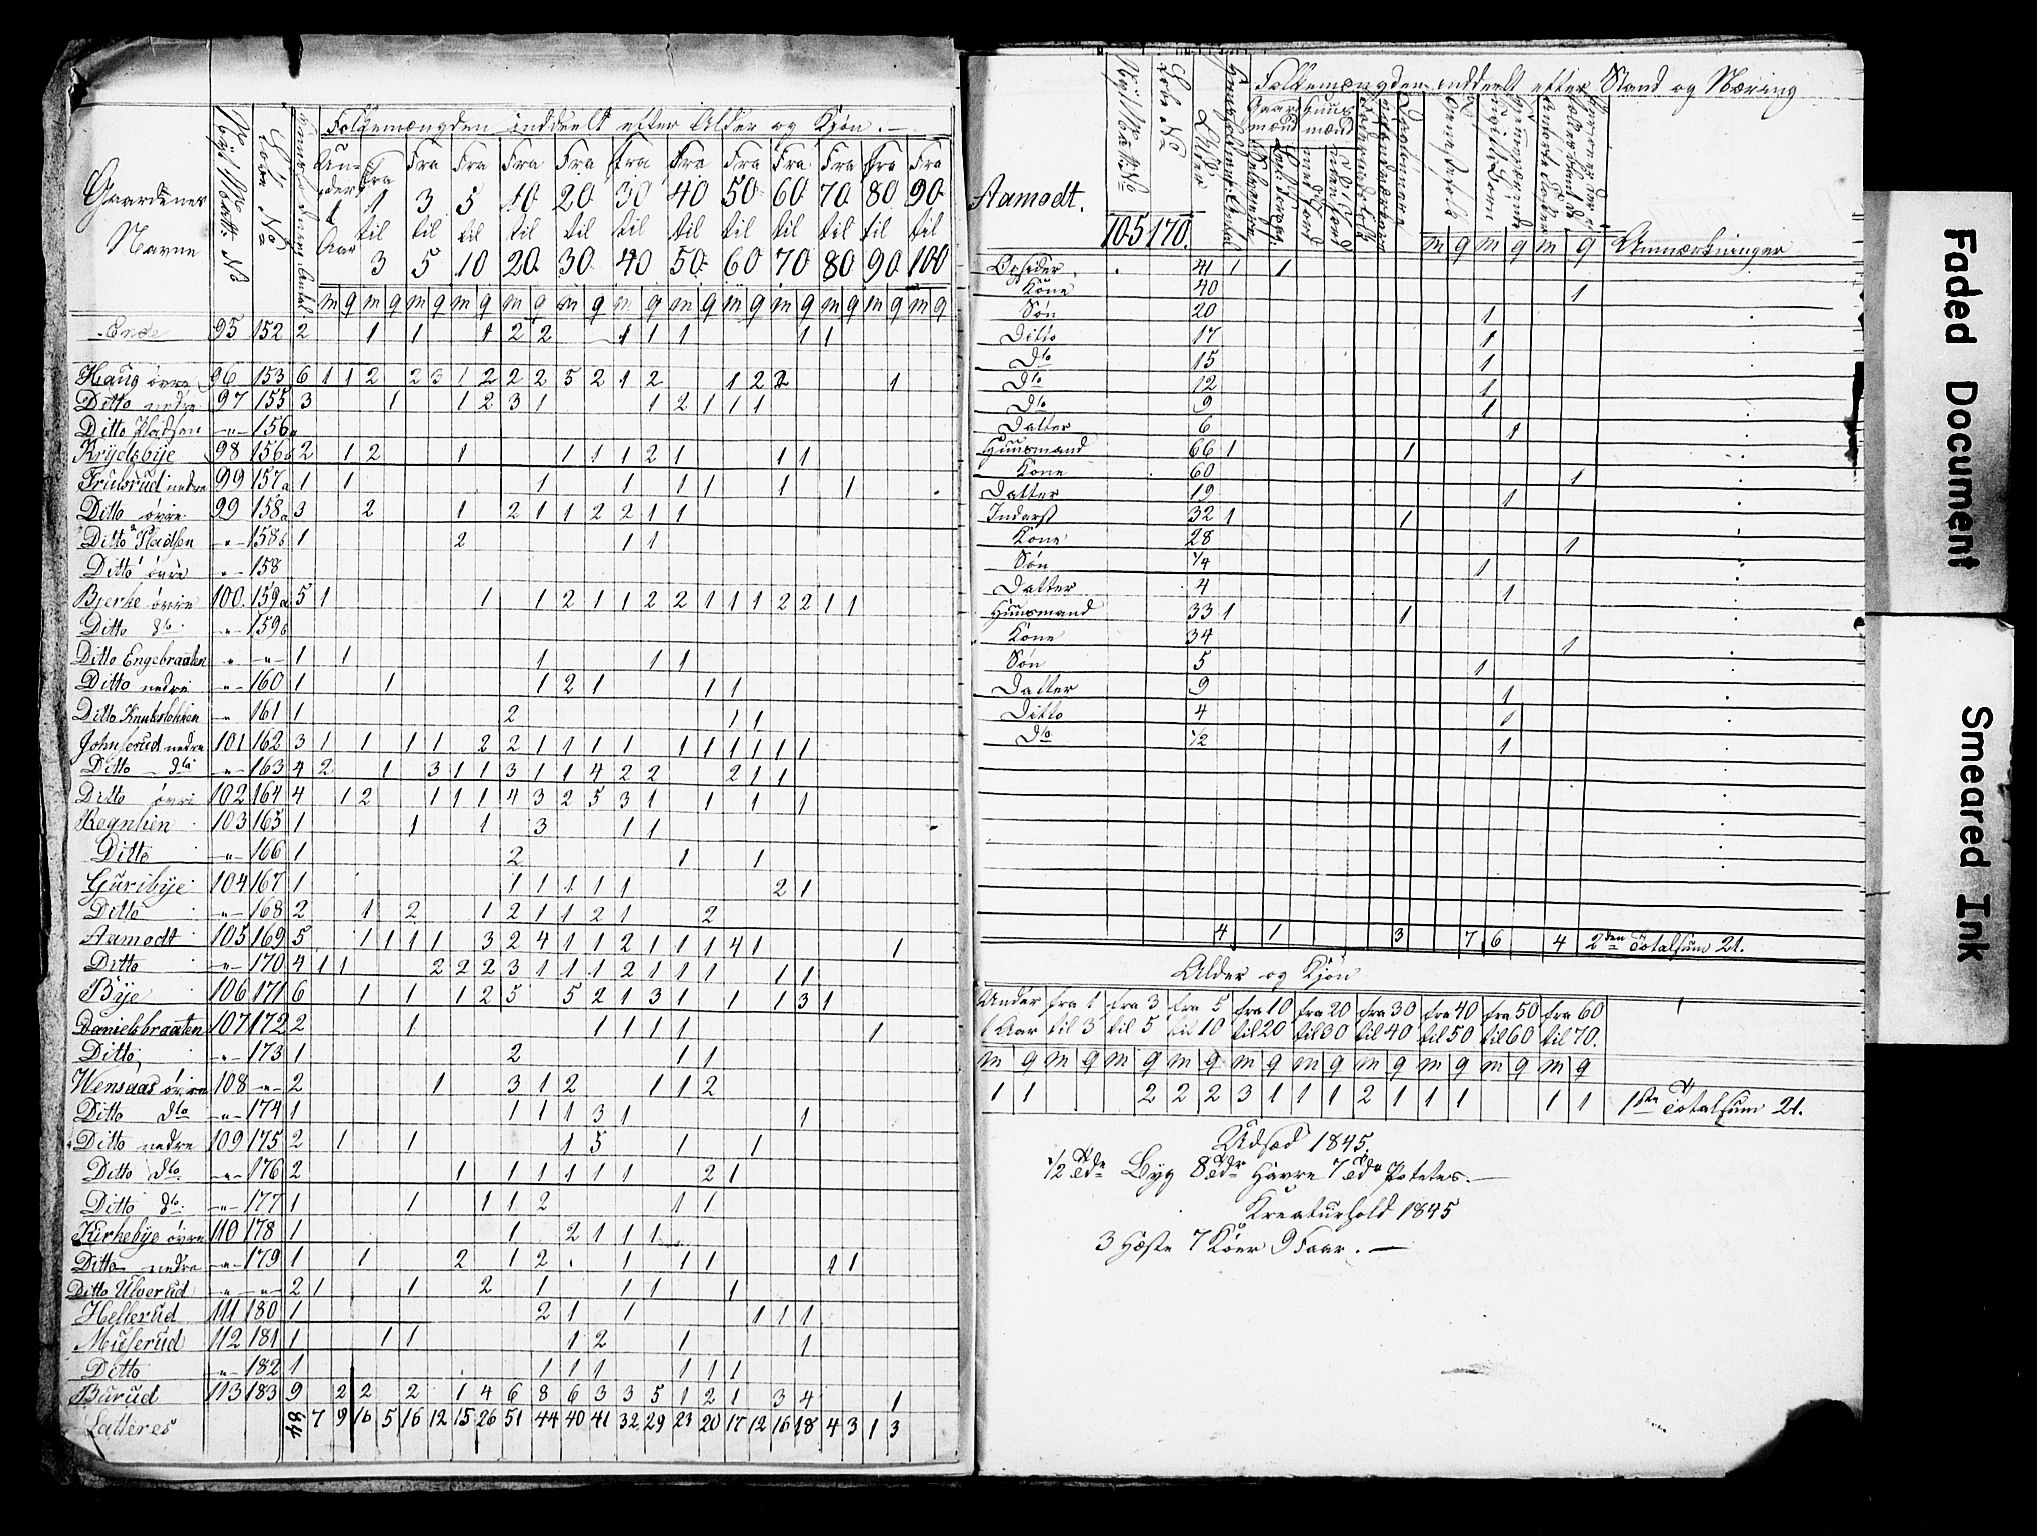 Folkemængden inddeelt efter Alder og Kjøn.
Gaardenes Navne
Under 1 Aar
Fra 1 til 3
Fra 3 til 5
Fra 5 til 10
Fra 10 til 20
Fra 20 til 30
Fra 30 til 40
Fra 40 til 50
Fra 50 til 60
Fra 60 til 70
Fra 70 til 80
Fra 80 til 90
Fra 90 til 100
m q m q m q m q m q m q m q m q m q m q m q m q m q
Ende 95 152 2 1 1 1 2 2 1 1 1 1 1
Haug øvre 96 153 6 1 1 2 2 3 1 2 2 2 5 2 1 2 1 2 2 1
Ditto nedre 97 155 3 1 1 2 3 1 1 2 1 1 1
Ditto Pladsen -"- 156a
Krydsbye 98 156b 2 1 2 1 1 1 1 2 1 1 1
Frubrud nedre 99 157a 1 1 1 1 1 1 1 1
Ditto øvre 99 158a 3 2 1 2 1 1 2 2 1 1
Ditto Pladsen -"- 158b 1 2 1 1
Ditto øvre -"- 158
Bjerke øvre 100 159a 5 1 1 1 2 1 1 2 2 1 1 1 2 2 1 1
Ditto do -"- 159b
Ditto Engebraaten " -"- 1 1 1 1 1
Ditto nedre -"- 160 1 1 1 2 1 1 1
Ditto Knutsløkken -"- 161 1 2 1 1
Johnsrud nedre 101 162 3 1 1 1 1 2 2 1 1 1 1 1 1 1 1 1 1
Ditto dto -"- 163 4 2 1 3 1 1 3 1 1 4 2 2 2 1 1
Ditto øvre 102 164 4 1 2 1 1 1 4 3 2 5 3 1 1 1 1
Rognlien 103 165 1 1 1 3 1 1
Ditto -"- 166 1 2 1 1
Guribye 104 167 1 1 1 1 1 1 2 1
Ditto -"- 168 2 1 2 1 2 1 1 2 1 2
Aamodt 105 169 5 1 1 1 1 3 2 4 1 1 2 1 1 1 4 1 1
Ditto -"- 170 4 1 1 2 2 2 3 1 1 1 2 1 1 1 1 1
Bye 106 171 6 1 1 1 2 5 5 2 1 3 1 1 1 3 1
Danielsbraaten 107 172 2 1 1 1 1 1 1
Ditto -"- 173 1 2 1 1
Wensaas øvre 108 -"- 2 1 3 1 2 1 1 2
Ditto dto -"- 174 1 1 1 1 3 1 1
Ditto nedre 109 175 2 1 1 1 5 1 1
Ditto dto -"- 176 2 1 1 1 1 1 1 2 1
Ditto do -"- 177 1 1 1 1 2 1 1
Kirkebye øvre 110 178 1 1 2 1 1 1
Ditto nedre -"- 179 1 1 2 1 2 1 1 1 1 1
Ditto Ulverud -"- -"- 2 1 1 2 1 1 1 1
Hellerud 111 180 1 2 1 1 1 1 1
Muserud 112 181 1 1 1 1 2 1 1
Ditto -"- 182 1 1 1 1 1 1 1
Burud 113 183 9 2 2 2 1 4 6 8 6 3 3 5 1 2 1 3 4 1
Latteres 84 7 9 16 5 16 12 15 26 51 44 40 41 32 29 23 20 17 12 16 18 4 3 1 3
Folkemængden inddeelt efter Stand og Næring
Aamodt.
105 170.
Alder
m q m q m q Anmærkninger
Opsidder 41 1 1
Kone 40 1
Søn 20 1
Ditto 17 1
Dto 15 1
Dto 12 1
Dto 9 1
Datter 6 1
Huusmand 66 1 1
Kone 60 1
Datter 19 1
Inderst 32 1 1
Kone 28 1
Søn 1/4 1
Datter 4 1
Huusmand 33 1 1
Kone 34 1
Søn 5 1
Datter 9 1
Ditto 4 1
Dto 1/2 1
4 1 3 7 6 4 2den Totalsum 21.
Alder og Kjøn
Under 1 Aar
fra 1 til 3
fra 3 til 5
fra 5 til 10
fra 10 til 20
fra 20 til 30
fra 30 til 40
fra 40 til 50
fra 50 til 60
fra 60 til 70.
m q m q m q m q m q m q m q m q m q m q
1 1 2 2 2 3 1 1 1 2 1 1 1 1 1 1ste Totalsum 21.
Udsæd 1845.
1/2 Tde Byg 8 Tdr Havre 7 Tdr Potetes. —
Kreaturhold 1845
3 Heste 7 Køer 9 Faar. —
Faded Document
Smeared Ink